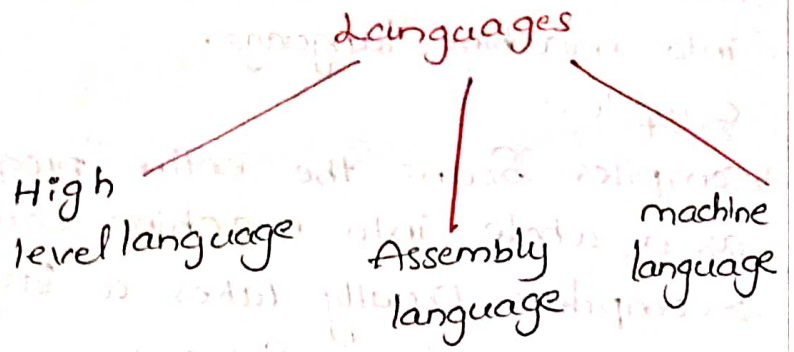 Languages
High
level language
Assembly
language
machine
language